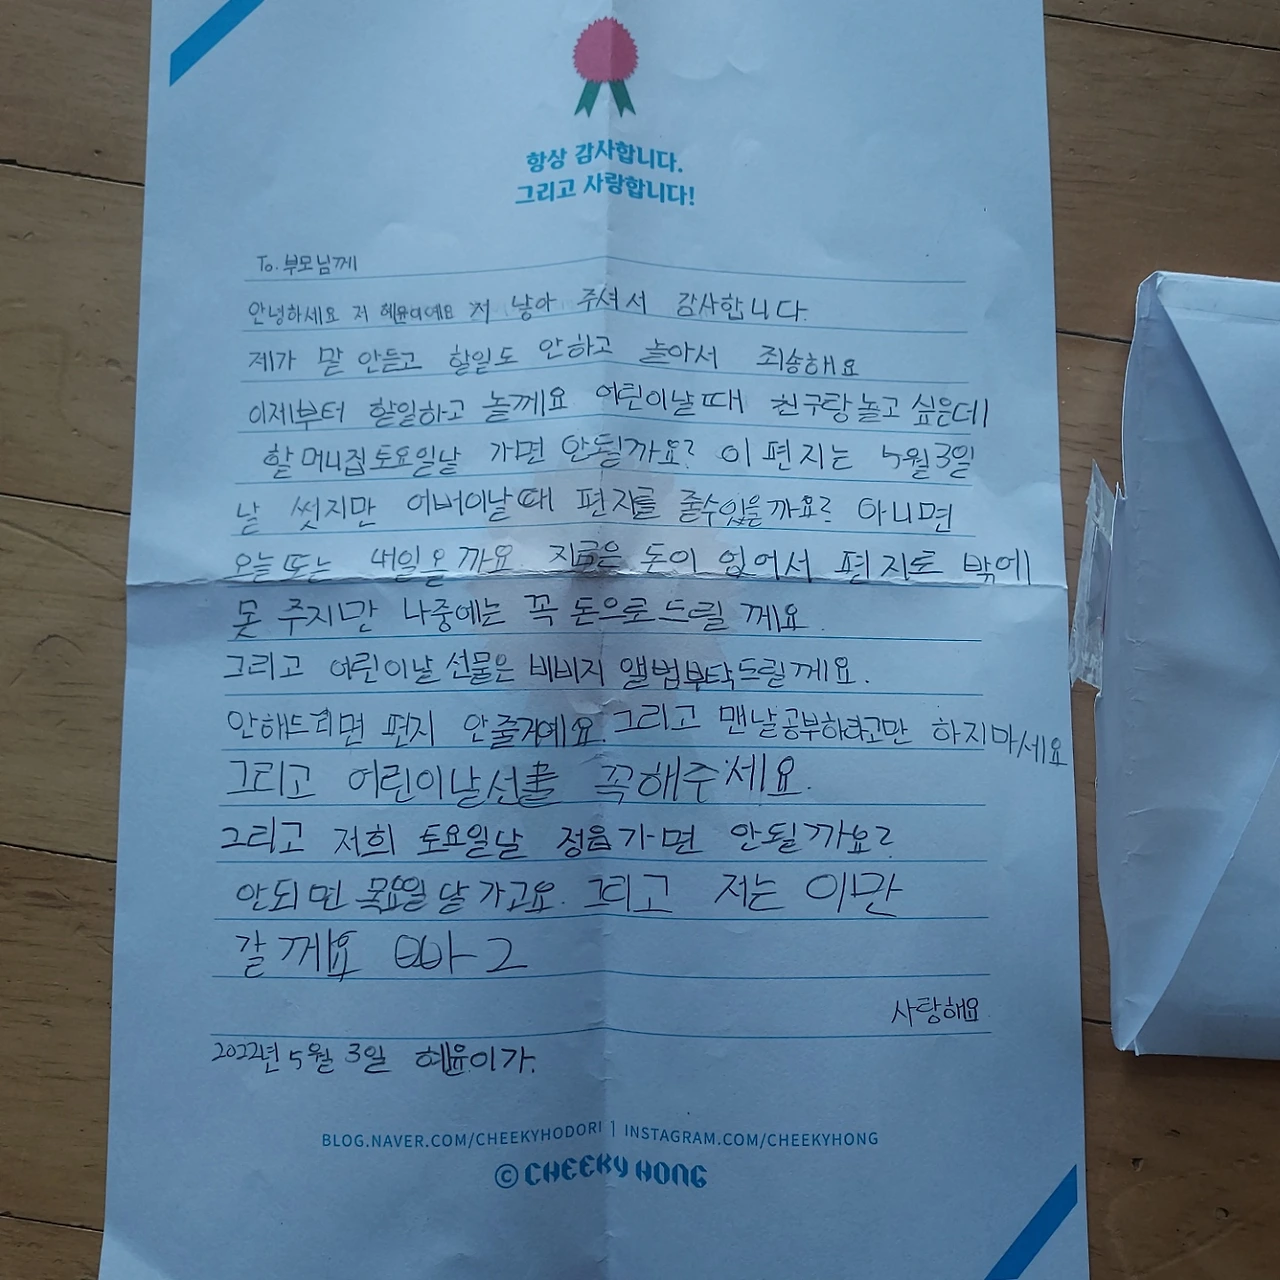 항상 감사합니다.
그리고 사랑합니다!
To. 부모님께
안녕하세요 저 혜윤이에요 저 낳아 주셔서 감사합니다.
제가 말 안듣고 할일도 안하고 놀아서 죄송해요
이제부터 할일하고 놀께요 어린이날때 친구랑놀고 싶은데
할머니집토요일날 가면 안될까요? 이 편지는 5월3일
날 썼지만 어버이날때 편지를 줄수있을까요? 아니면
오늘 또는 내일은까요 지금은 돈이 없어서 편지로 밖에
못 주지만 나중에는 꼭 돈으로드릴 께요.
그리고 어린이날 선물은 비비지 앨범부탁드릴께요.
안해드리면 편지 안줄거에요. 그리고 맨날공부하라고만 하지마세요
그리고 어린이날선물 꼭해주세요.
그리고 저희 토요일날 정읍가면 안될까요?
안되면 목요일 날 가고요. 그리고 저는 이만
갈께요
사랑해요
2022년 5월 3일 혜윤이가.
BLOG.NAVER.COM/CHEEKYHODORI | INSTAGRAM.COM/CHEEKYHONG
© CHEEKY HONG